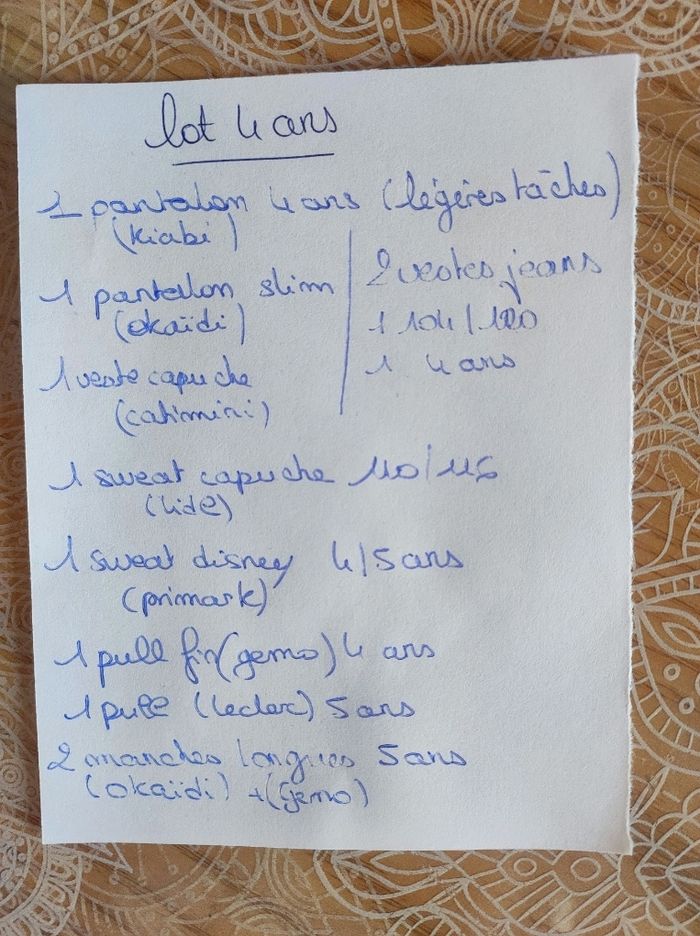 lot 4 ans
1 pantalon 4 ans (légères tâches)
(Kiabi)
1 pantalon slim
(okaïdi)
1 veste capuche
(catimini)
2 vestes jeans
1 104/120
1 4 ans
1 sweat capuche 110/116
(lidl)
1 sweat disney 4/5 ans
(primark)
1 pull fin (gemo) 4 ans
1 pull (leclerc) 5 ans
2 manches longues 5 ans
(okaïdi) + (gemo)